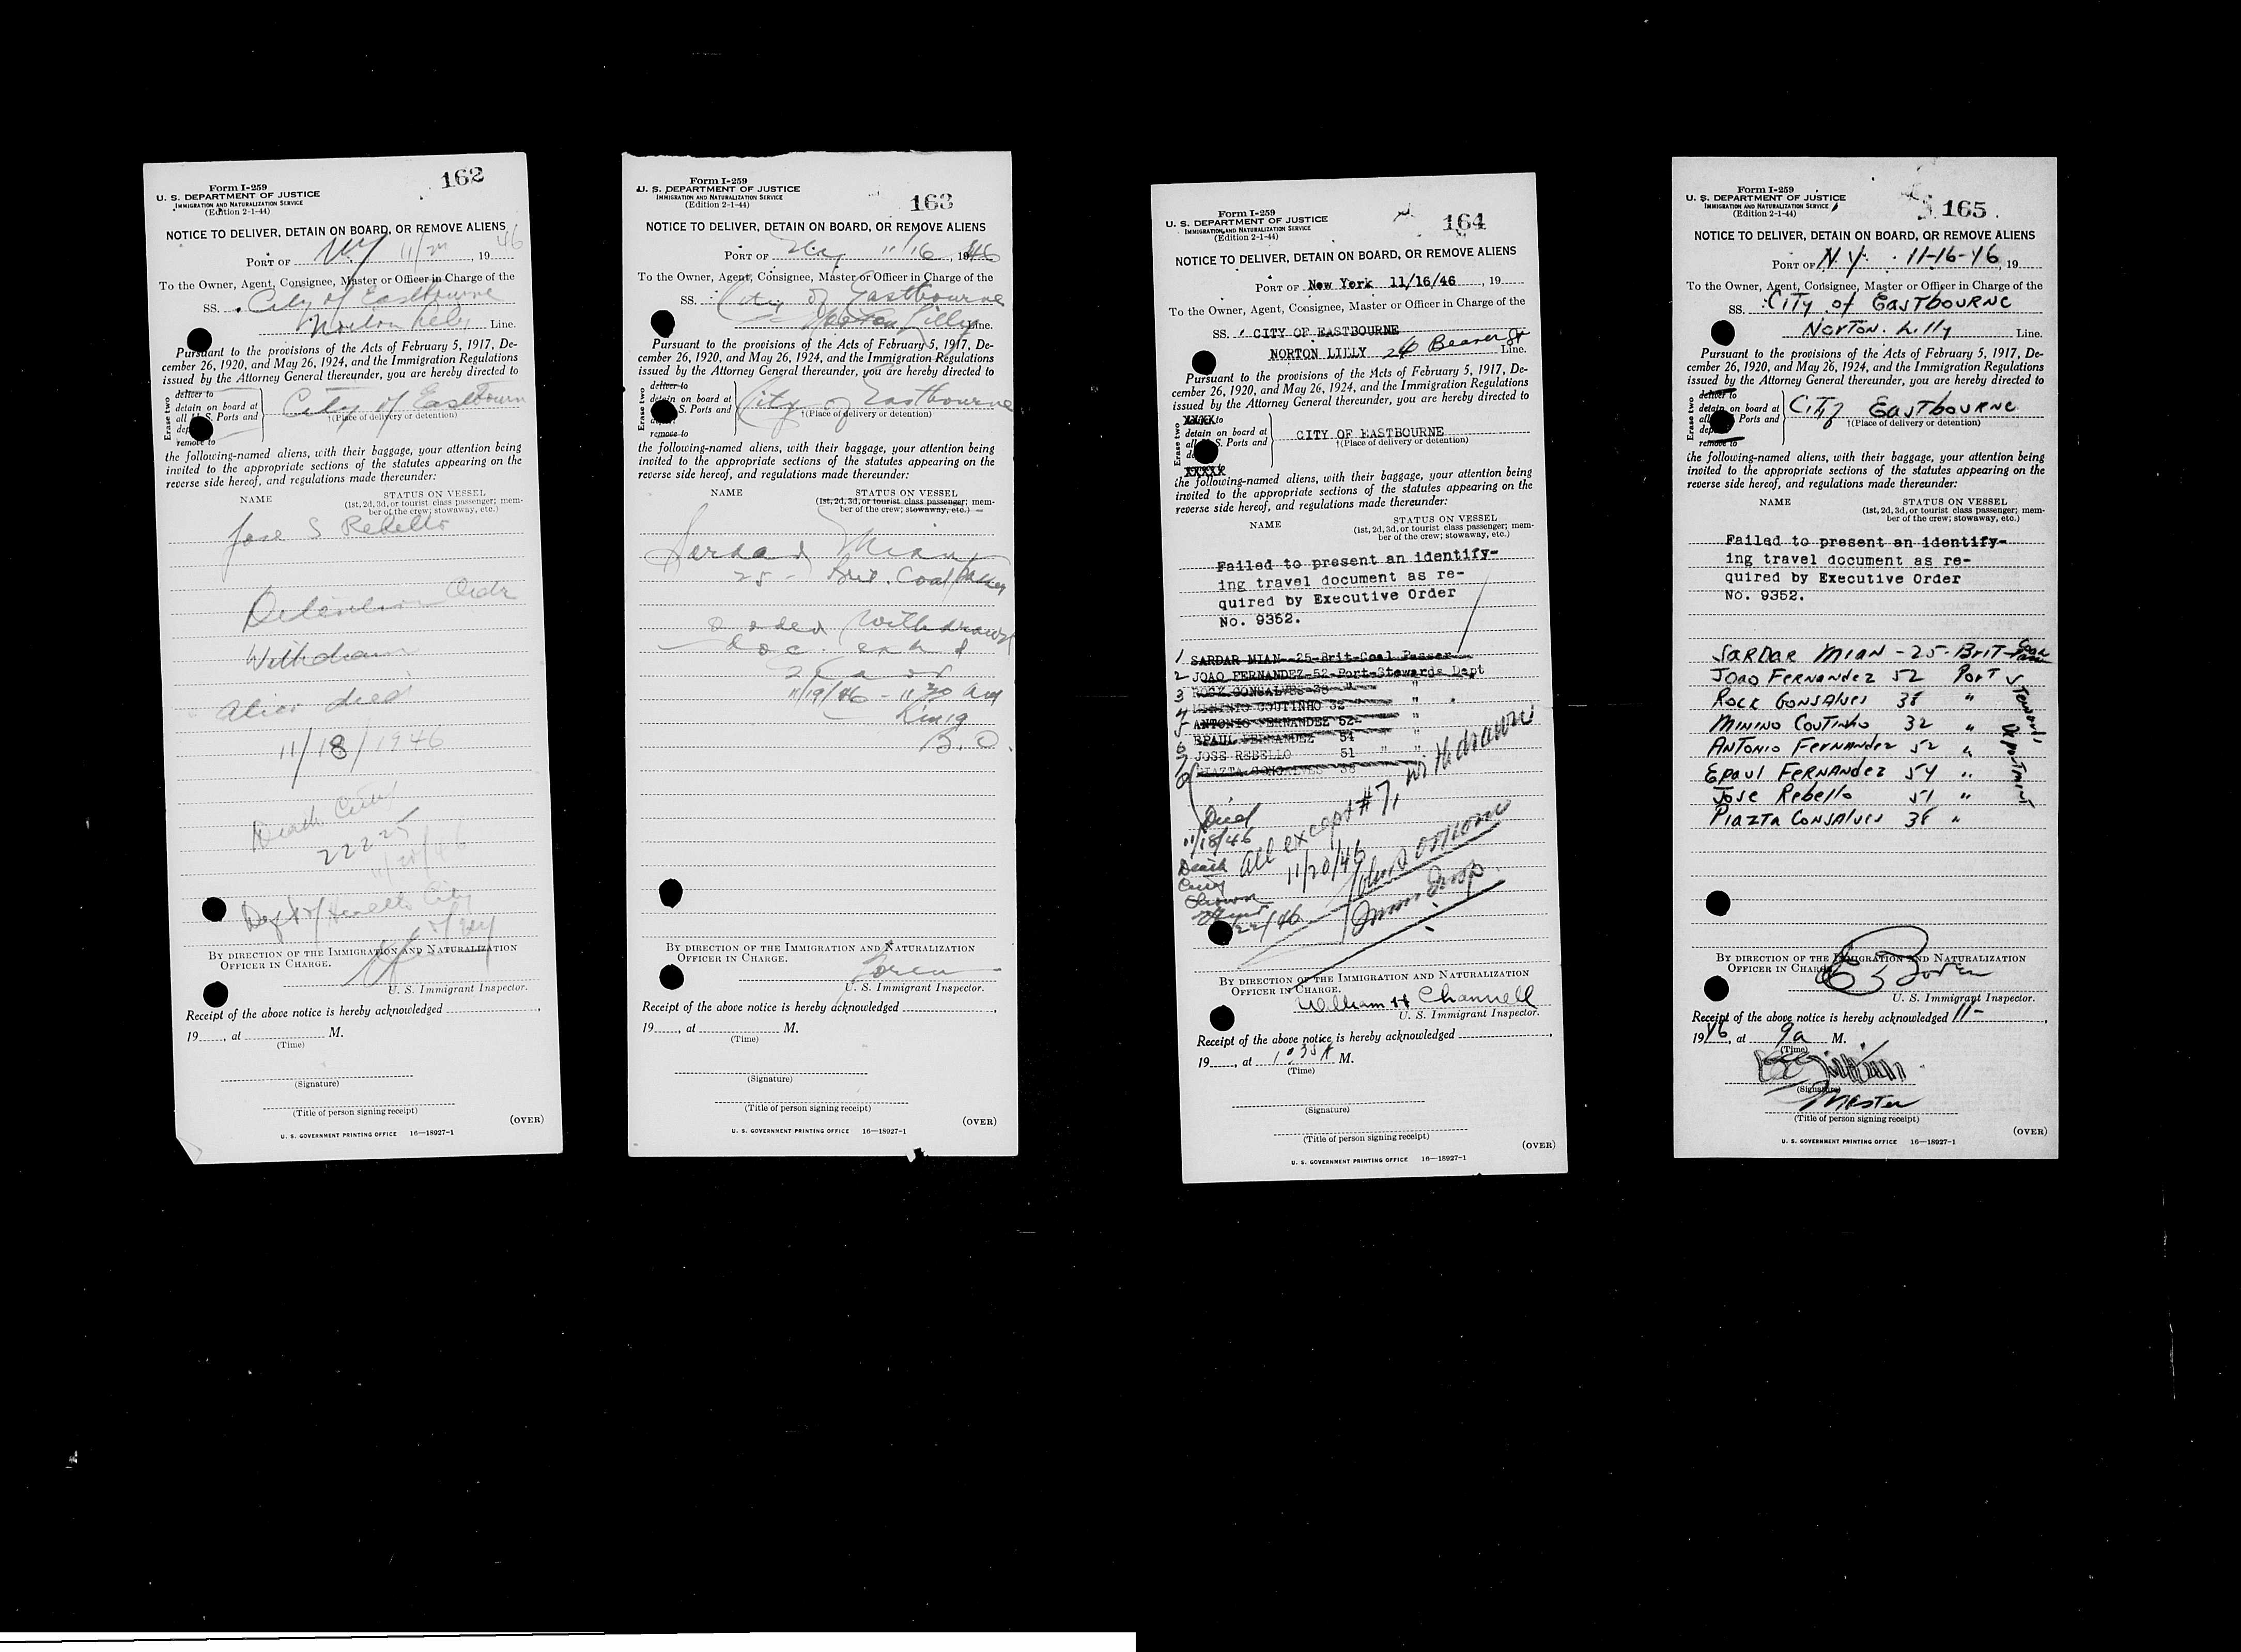 162
Form I-259
U. S. DEPARTMENT OF JUSTICE
IMMIGRATION AND NATURALIZATION SERVICE
(Edition 2-1-44)
NOTICE TO DELIVER, DETAIN ON BOARD, OR REMOVE ALIENS
PORT OF NY 11/ , 19 46
To the Owner, Agent, Consignee, Master or Officer in Charge of the
SS. City of Eastbourne
Norton Lilly Line.
Pursuant to the provisions of the Acts of February 5, 1917, De-
cember 26, 1920, and May 26, 1924, and the Immigration Regulations
issued by the Attorney General thereunder, you are hereby directed to
Erase two
deliver to
detain on board at
all U. S. Ports and
remove to
City of Eastbourn
†(Place of delivery or detention)
the following-named aliens, with their baggage, your attention being
invited to the appropriate sections of the statutes appearing on the
reverse side hereof, and regulations made thereunder:
NAME STATUS ON VESSEL
(1st, 2d, 3d, or tourist class passenger; mem-
ber of the crew; stowaway, etc.)
Jose S Rebello
Detention Order
Withdrawn
Alien died
11/18/1946
Death
222
BY DIRECTION OF THE IMMIGRATION AND NATURALIZATION
OFFICER IN CHARGE.
U. S. Immigrant Inspector.
Receipt of the above notice is hereby acknowledged
19 , at M.
(Time)
(Signature)
(Title of person signing receipt)
(OVER)
U. S. GOVERNMENT PRINTING OFFICE 16—18927-1
163
Form I-259
U. S. DEPARTMENT OF JUSTICE
IMMIGRATION AND NATURALIZATION SERVICE
(Edition 2-1-44)
NOTICE TO DELIVER, DETAIN ON BOARD, OR REMOVE ALIENS
PORT OF 11/16 , 1946
To the Owner, Agent, Consignee, Master or Officer in Charge of the
SS. City of Eastbourne
Norton Lilly Line.
Pursuant to the provisions of the Acts of February 5, 1917, De-
cember 26, 1920, and May 26, 1924, and the Immigration Regulations
issued by the Attorney General thereunder, you are hereby directed to
Erase two
deliver to
detain on board at
S. Ports and
remove to
City of Eastbourne
†(Place of delivery or detention)
the following-named aliens, with their baggage, your attention being
invited to the appropriate sections of the statutes appearing on the
reverse side hereof, and regulations made thereunder:
NAME STATUS ON VESSEL
(1st, 2d, 3d, or tourist class passenger; mem-
ber of the crew; stowaway, etc.)
Sardar Mian
25 - Brit. Coal Passer
withdrawn
doc.
11/19/46 - 11 30 AM
BY DIRECTION OF THE IMMIGRATION AND NATURALIZATION
OFFICER IN CHARGE.
U. S. Immigrant Inspector.
Receipt of the above notice is hereby acknowledged
19 , at M.
(Time)
(Signature)
(Title of person signing receipt)
(OVER)
U. S. GOVERNMENT PRINTING OFFICE 16—18927-1
164
Form I-259
U. S. DEPARTMENT OF JUSTICE
IMMIGRATION AND NATURALIZATION SERVICE
(Edition 2-1-44)
NOTICE TO DELIVER, DETAIN ON BOARD, OR REMOVE ALIENS
PORT OF New York 11/16/46 , 19
To the Owner, Agent, Consignee, Master or Officer in Charge of the
SS. CITY OF EASTBOURNE
NORTON LILLY 26 Beaver St Line.
Pursuant to the provisions of the Acts of February 5, 1917, De-
cember 26, 1920, and May 26, 1924, and the Immigration Regulations
issued by the Attorney General thereunder, you are hereby directed to
Erase two
XXXX to
detain on board at
all S. Ports and
XXXXX
CITY OF EASTBOURNE
†(Place of delivery or detention)
the following-named aliens, with their baggage, your attention being
invited to the appropriate sections of the statutes appearing on the
reverse side hereof, and regulations made thereunder:
NAME STATUS ON VESSEL
(1st, 2d, 3d, or tourist class passenger; mem-
ber of the crew; stowaway, etc.)
Failed to present an identify-
ing travel document as re-
quired by Executive Order
No. 9352.
1 SARDAR MIAN--25-Brit-Coal Passer
2 JOAO FERNANDEZ-52-Port-Stewards Dept
3 ROCK GONSALVES-38 " "
4 COUTINHO 32 "
5 ANTONIO FERNANDEZ 52 "
6 EPAUL FERNANDEZ 54
7 JOSE REBELLO 51 " "
8 PIAZTA GONSALVES 38
Died
11/18/46
Death
All except #7, withdrawn
11/20/46
BY DIRECTION OF THE IMMIGRATION AND NATURALIZATION
OFFICER IN CHARGE.
William H Channell
U. S. Immigrant Inspector.
Receipt of the above notice is hereby acknowledged
19 , at 10 35 A M.
(Time)
(Signature)
(Title of person signing receipt)
(OVER)
U. S. GOVERNMENT PRINTING OFFICE 16—18927-1
165
Form I-259
U. S. DEPARTMENT OF JUSTICE
IMMIGRATION AND NATURALIZATION SERVICE
(Edition 2-1-44)
NOTICE TO DELIVER, DETAIN ON BOARD, OR REMOVE ALIENS
PORT OF N.Y. 11-16-46 , 19
To the Owner, Agent, Consignee, Master or Officer in Charge of the
SS. CITY of EASTBOURNE
NORTON. Lilly Line.
Pursuant to the provisions of the Acts of February 5, 1917, De-
cember 26, 1920, and May 26, 1924, and the Immigration Regulations
issued by the Attorney General thereunder, you are hereby directed to
Erase two
deliver to
detain on board at
all Ports and
remove to
CITY EASTBOURNE
†(Place of delivery or detention)
the following-named aliens, with their baggage, your attention being
invited to the appropriate sections of the statutes appearing on the
reverse side hereof, and regulations made thereunder:
NAME STATUS ON VESSEL
(1st, 2d, 3d, or tourist class passenger; mem-
ber of the crew; stowaway, etc.)
Failed to present an identify-
ing travel document as re-
quired by Executive Order
No. 9352.
SARDAR MIAN - 25 - BRIT - Coal Passer
JOAO FERNANDEZ 52 PORT
ROCK GONSALVES 38 "
MININO COUTINHO 32 "
ANTONIO FERNANDEZ 52 "
EPAUL FERNANDEZ 54 "
JOSE Rebello 51 "
PIAZTA CONSALVES 38 "
Stewards Department
BY DIRECTION OF THE IMMIGRATION AND NATURALIZATION
OFFICER IN CHARGE.
U. S. Immigrant Inspector.
Receipt of the above notice is hereby acknowledged 11-
1946, at 9a M.
(Time)
(Signature)
Master
(Title of person signing receipt)
(OVER)
U. S. GOVERNMENT PRINTING OFFICE 16—18927-1